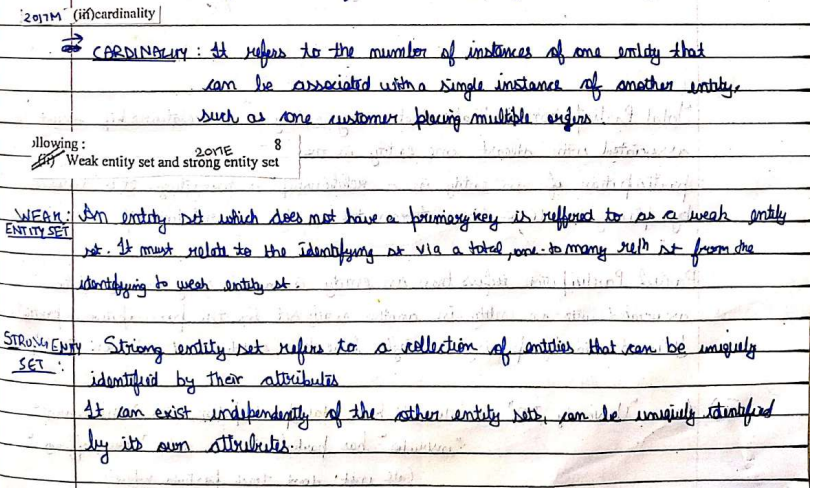 2017M (iii)cardinality
→ CARDINALITY : It refers to the number of instances of one entity that
can be associated with a single instance of another entity,
such as one customer placing multiple orders.
ollowing : 8
2017E
(ii) Weak entity set and strong entity set
WEAK ENTITY SET : An entity set which does not have a primary key is reffered to as a weak entity
set. It must relate to the identifying set via a total, one-to many reln st from the
identifying to weak entity st.
STRONG ENTITY SET : Strong entity set refers to a collection of entities that can be uniquely
identified by their attributes
It can exist independently of the other entity sets, can be uniquely identified
by its own attributes.